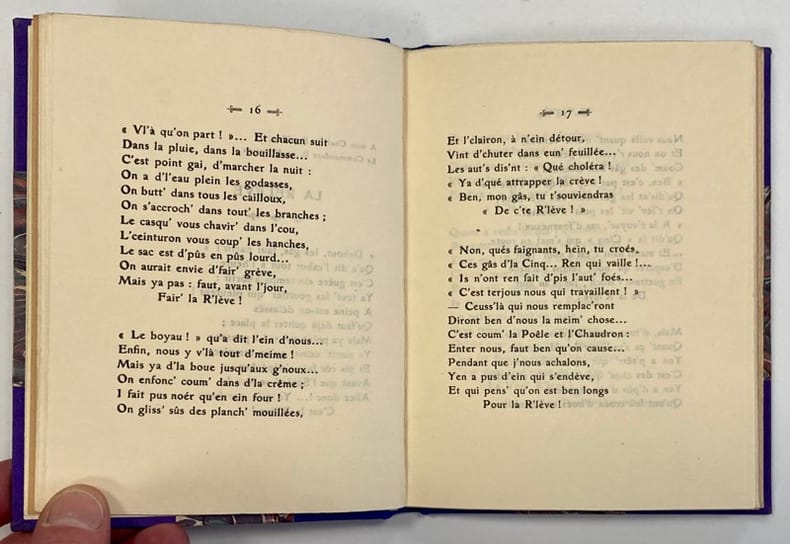 16
« Vl'à qu'on part ! »... Et chacun suit
Dans la pluie, dans la bouillasse...
C'est point gai, d'marcher la nuit :
On a d'l'eau plein les godasses,
On butt' dans tous les cailloux,
On s'accroch' dans tout' les branches ;
Le casqu' vous chavir' dans l'cou,
L'ceinturon vous coup' les hanches,
Le sac est d'pûs en pûs lourd...
On aurait envie d'fair' grève,
Mais ya pas : faut, avant l'jour,
Fair' la R'lève !
« Le boyau ! » qu'a dit l'ein d'nous...
Enfin, nous y v'là tout d'meime !
Mais ya d'la boue jusqu'aux g'noux...
On enfonc' coum' dans d'la crème ;
I fait pus noér qu'en ein four !
On gliss' sûs des planch' mouillées,
17
Et l'clairon, à n'ein détour,
Vint d'chuter dans eun' feuillée...
Les aut's dis'nt : « Qué choléra !
« Ya d'qué attrapper la crève !
« Ben, mon gâs, tu t'souviendras
« De c'te R'lève ! »
« Non, qués faignants, hein, tu croés,
« Ces gâs d'la Cinq... Ren qui vaille !...
« Is n'ont ren fait d'pis l'aut' foés...
« C'est terjous nous qui travaillent ! »
— Ceuss'là qui nous remplac'ront
Diront ben d'nous la meim' chose...
C'est coum' la Poêle et l'Chaudron :
Enter nous, faut ben qu'on cause...
Pendant que j'nous achalons,
Yen a pus d'ein qui s'endève,
Et qui pens' qu'on est ben longs
Pour la R'lève !